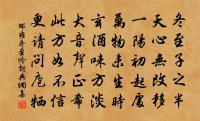 冬至子之半
天心無改移
一陽初起處
萬物未生時
玄酒味方淡
大音聲正希
此言如不信
更請問庖犧
邵雍冬至吟詞典網集